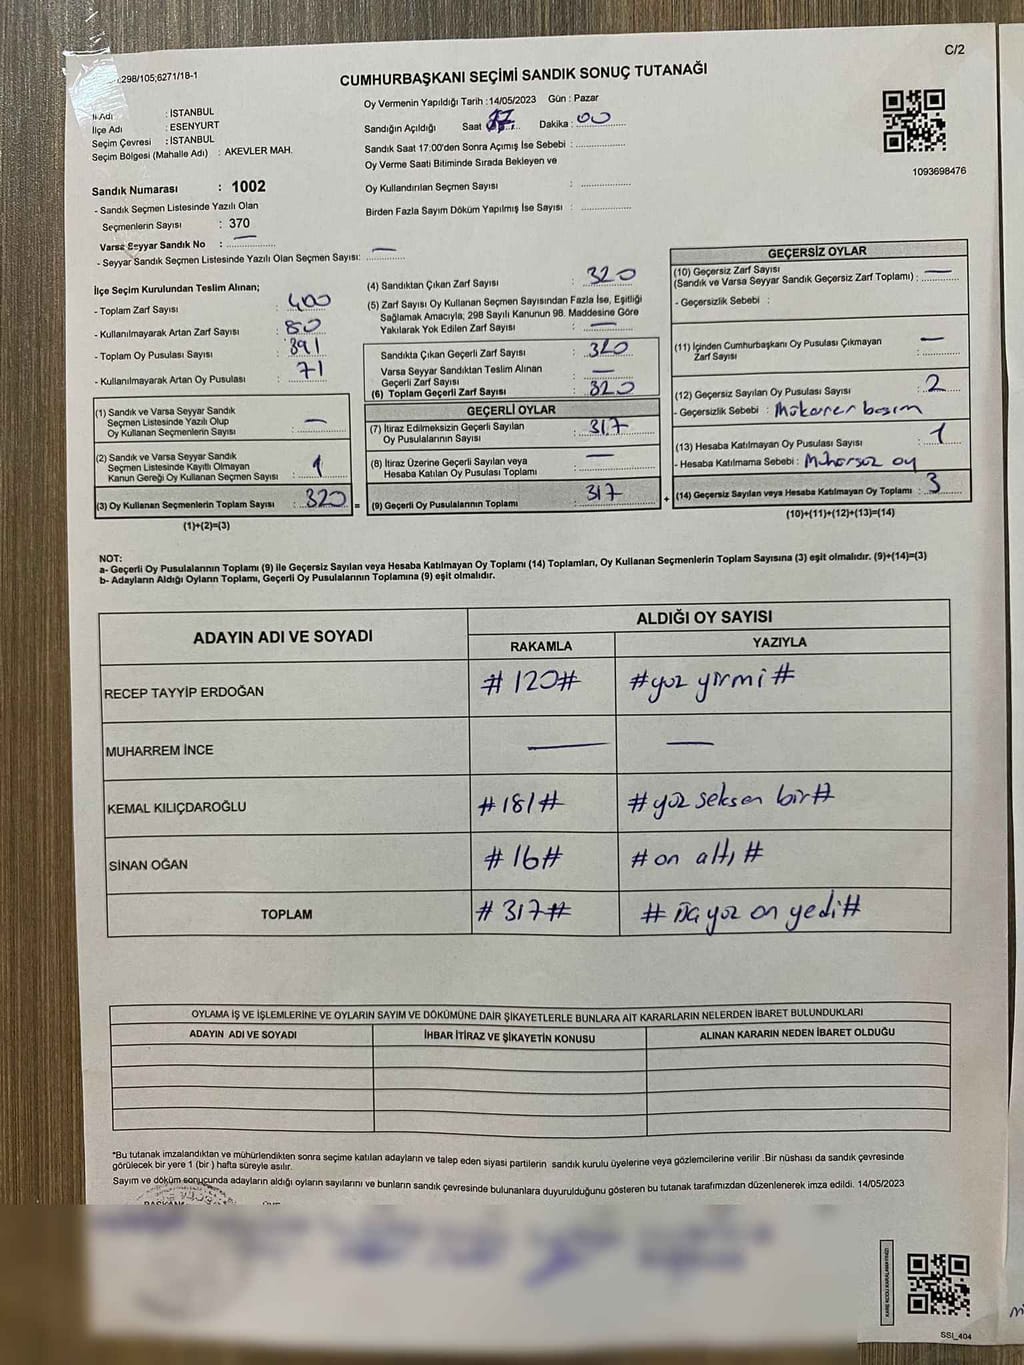 C/2
.298/105;6271/18-1
CUMHURBAŞKANI SEÇİMİ SANDIK SONUÇ TUTANAĞI
İl Adı : İSTANBUL
İlçe Adı : ESENYURT
Seçim Çevresi : İSTANBUL
Seçim Bölgesi (Mahalle Adı) : AKEVLER MAH.
Oy Vermenin Yapıldığı Tarih : 14/05/2023 Gün : Pazar
Sandığın Açıldığı Saat 17 Dakika : 00
Sandık Saat 17:00'den Sonra Açımış İse Sebebi :
Oy Verme Saati Bitiminde Sırada Bekleyen ve
Oy Kullandırılan Seçmen Sayısı :
Birden Fazla Sayım Döküm Yapılmış İse Sayısı :
1093698476
Sandık Numarası : 1002
- Sandık Seçmen Listesinde Yazılı Olan
Seçmenlerin Sayısı : 370
Varsa Seyyar Sandık No : —
- Seyyar Sandık Seçmen Listesinde Yazılı Olan Seçmen Sayısı: —
İlçe Seçim Kurulundan Teslim Alınan;
- Toplam Zarf Sayısı : 400
- Kullanılmayarak Artan Zarf Sayısı : 80
- Toplam Oy Pusulası Sayısı : 391
- Kullanılmayarak Artan Oy Pusulası : 71
(1) Sandık ve Varsa Seyyar Sandık
Seçmen Listesinde Yazılı Olup
Oy Kullanan Seçmenlerin Sayısı : —
(2) Sandık ve Varsa Seyyar Sandık
Seçmen Listesinde Kayıtlı Olmayan
Kanun Gereği Oy Kullanan Seçmen Sayısı : 1
(3) Oy Kullanan Seçmenlerin Toplam Sayısı : 320 =
(1)+(2)=(3)
(4) Sandıktan Çıkan Zarf Sayısı : 320
(5) Zarf Sayısı Oy Kullanan Seçmen Sayısından Fazla İse, Eşitliği
Sağlamak Amacıyla; 298 Sayılı Kanunun 98. Maddesine Göre
Yakılarak Yok Edilen Zarf Sayısı : —
Sandıkta Çıkan Geçerli Zarf Sayısı : 320
Varsa Seyyar Sandıktan Teslim Alınan
Geçerli Zarf Sayısı : —
(6) Toplam Geçerli Zarf Sayısı : 320
GEÇERLİ OYLAR
(7) İtiraz Edilmeksizin Geçerli Sayılan
Oy Pusulalarının Sayısı : 317
(8) İtiraz Üzerine Geçerli Sayılan veya
Hesaba Katılan Oy Pusulası Toplamı : —
(9) Geçerli Oy Pusulalarının Toplamı : 317 +
GEÇERSİZ OYLAR
(10) Geçersiz Zarf Sayısı
(Sandık ve Varsa Seyyar Sandık Geçersiz Zarf Toplamı) : —
- Geçersizlik Sebebi :
(11) İçinden Cumhurbaşkanı Oy Pusulası Çıkmayan
Zarf Sayısı : —
(12) Geçersiz Sayılan Oy Pusulası Sayısı : 2
- Geçersizlik Sebebi : Mükerrer basım
(13) Hesaba Katılmayan Oy Pusulası Sayısı : 1
- Hesaba Katılmama Sebebi : Mühürsüz oy
(14) Geçersiz Sayılan veya Hesaba Katılmayan Oy Toplamı : 3
(10)+(11)+(12)+(13)=(14)
NOT:
a- Geçerli Oy Pusulalarının Toplamı (9) ile Geçersiz Sayılan veya Hesaba Katılmayan Oy Toplamı (14) Toplamları, Oy Kullanan Seçmenlerin Toplam Sayısına (3) eşit olmalıdır. (9)+(14)=(3)
b- Adayların Aldığı Oyların Toplamı, Geçerli Oy Pusulalarının Toplamına (9) eşit olmalıdır.
ADAYIN ADI VE SOYADI
ALDIĞI OY SAYISI
RAKAMLA YAZIYLA
RECEP TAYYİP ERDOĞAN #120# #yüz yirmi#
MUHARREM İNCE — —
KEMAL KILIÇDAROĞLU #181# #yüz seksen bir#
SİNAN OĞAN #16# #on altı#
TOPLAM #317# #üç yüz on yedi#
OYLAMA İŞ VE İŞLEMLERİNE VE OYLARIN SAYIM VE DÖKÜMÜNE DAİR ŞİKAYETLERLE BUNLARA AİT KARARLARIN NELERDEN İBARET BULUNDUKLARI
ADAYIN ADI VE SOYADI İHBAR İTİRAZ VE ŞİKAYETİN KONUSU ALINAN KARARIN NEDEN İBARET OLDUĞU
*Bu tutanak imzalandıktan ve mühürlendikten sonra seçime katılan adayların ve talep eden siyasi partilerin sandık kurulu üyelerine veya gözlemcilerine verilir .Bir nüshası da sandık çevresinde
görülecek bir yere 1 (bir ) hafta süreyle asılır.
Sayım ve döküm sonucunda adayların aldığı oyların sayılarını ve bunların sandık çevresinde bulunanlara duyurulduğunu gösteren bu tutanak tarafımızdan düzenlenerek imza edildi. 14/05/2023
BAŞKAN
KARE KODU KARALAMAYINIZ!
SSI_404